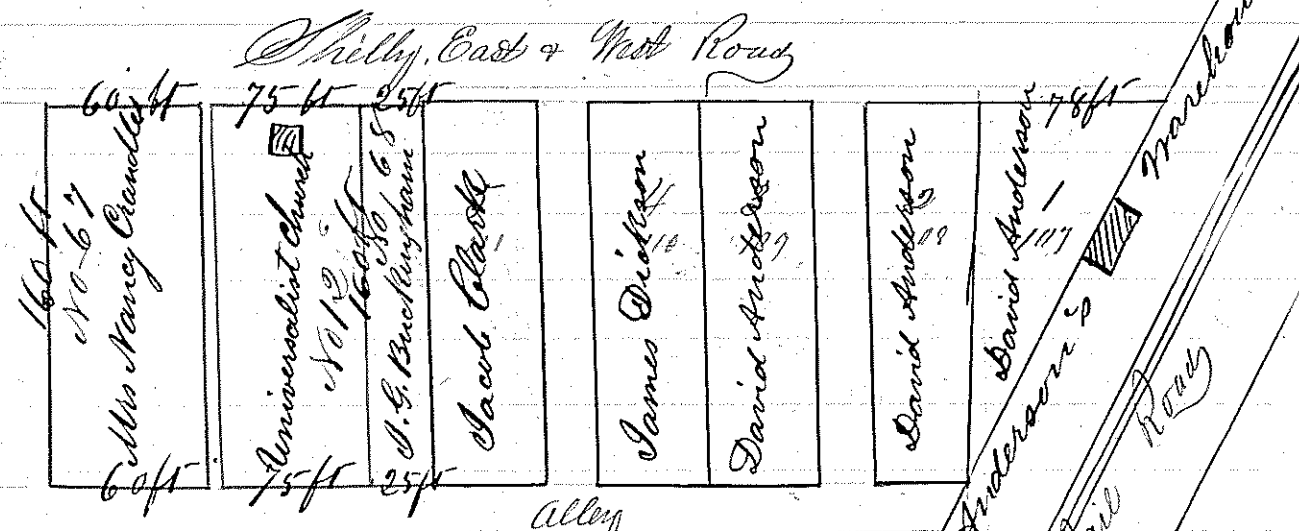 Shilly, East & West Road
60 ft 75 ft 25ft 78ft
160 ft
No 67
Mrs Nancy Crandler
Universalist Church
No 12
160 ft
No 68
J. G. Buckingham
Jacob Clark
James Dickson
110
David Anderson
109
David Anderson
108
David Anderson
107
Anderson's Warehouse
Rail Road
60ft 75ft 25ft
Alley